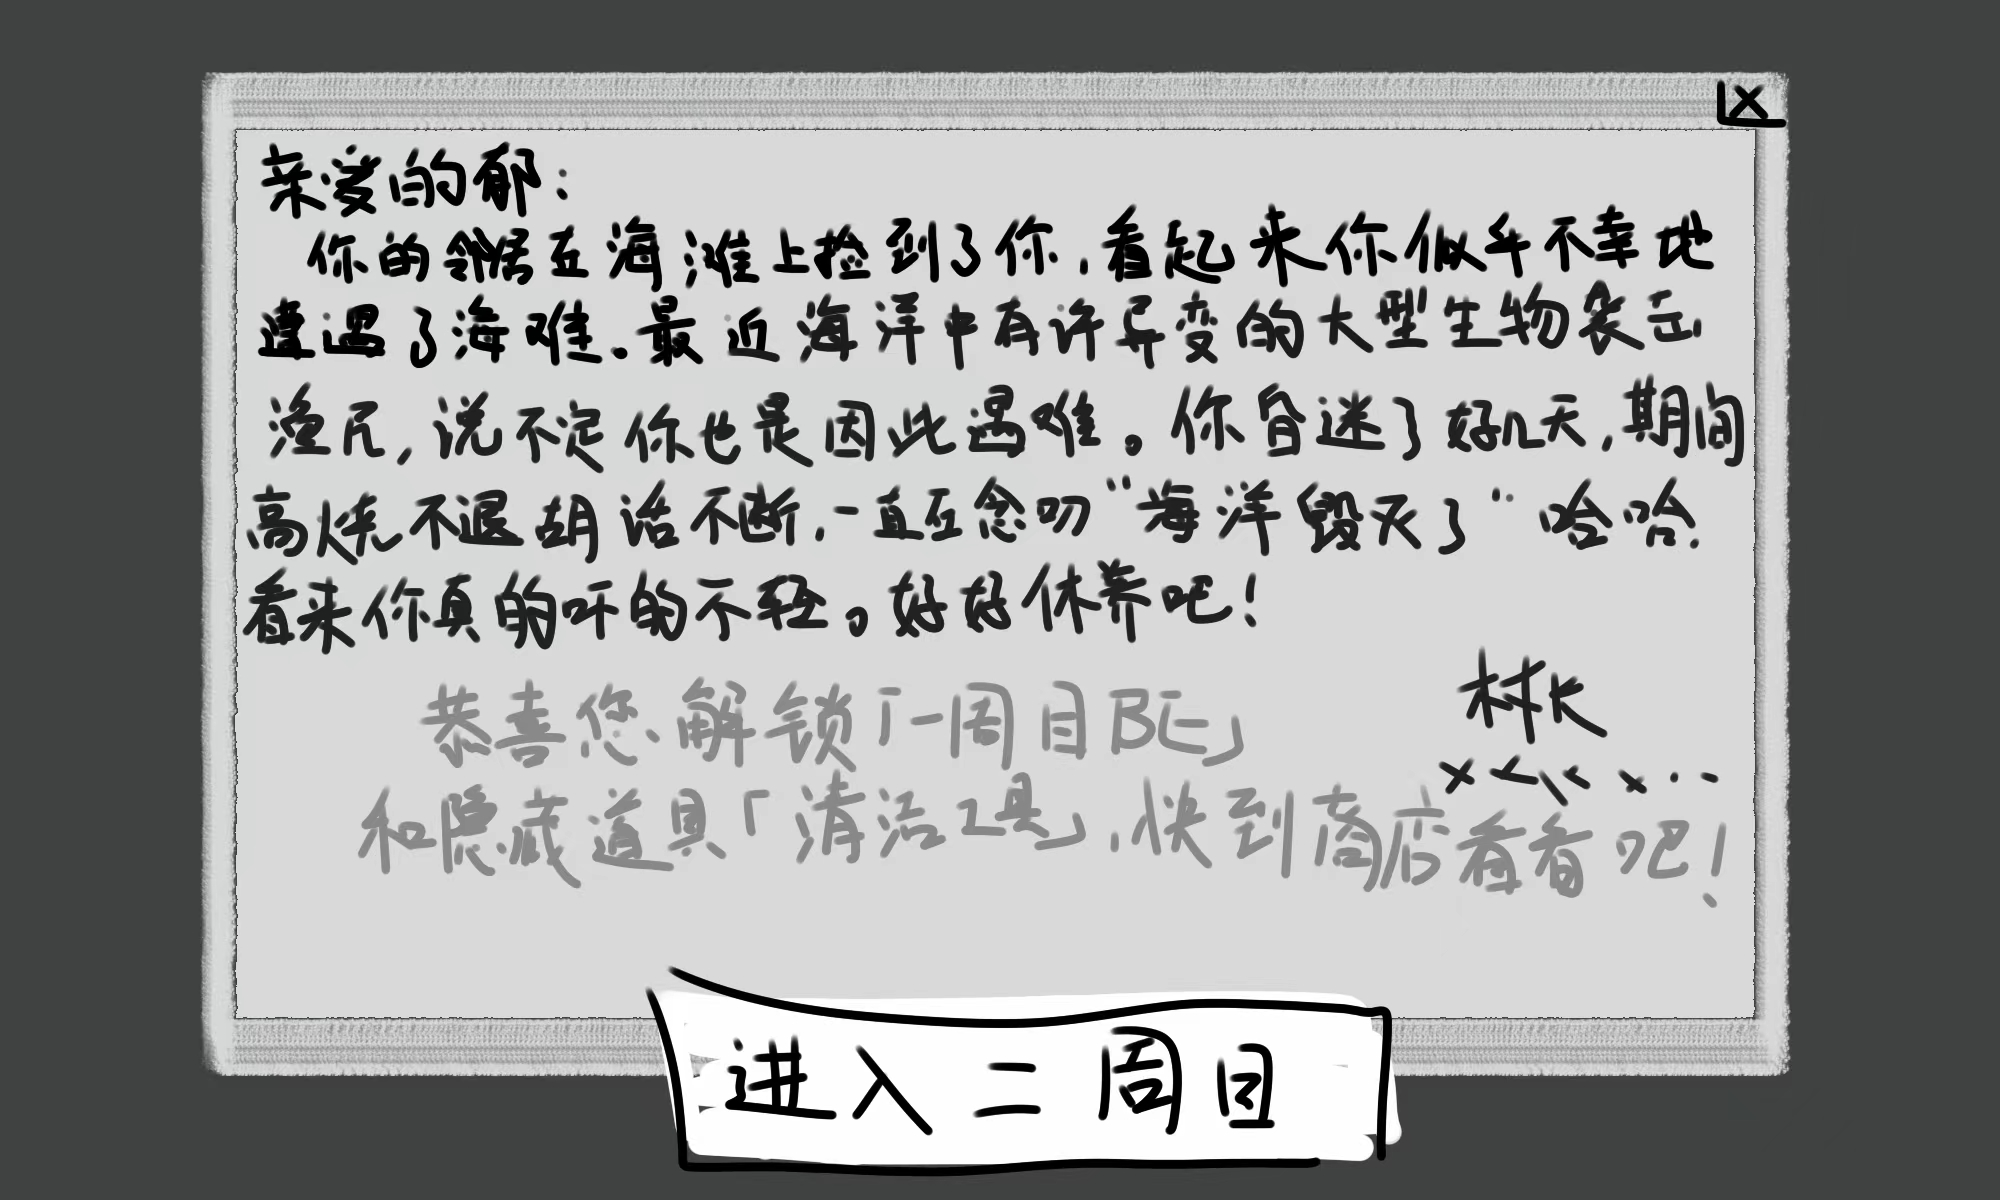 亲爱的郁：
你的邻居在海滩上捡到了你，看起来你似乎不幸地
遭遇了海难。最近海洋中有许异变的大型生物袭击
渔民，说不定你也是因此遇难。你昏迷了好几天，期间
高烧不退胡话不断，一直在念叨“海洋毁灭了”哈哈.
看来你真的吓的不轻。好好休养吧！
村长
恭喜您解锁「一周目BE」
和隐藏道具「清洁工具」，快到商店看看吧！
进入二周目